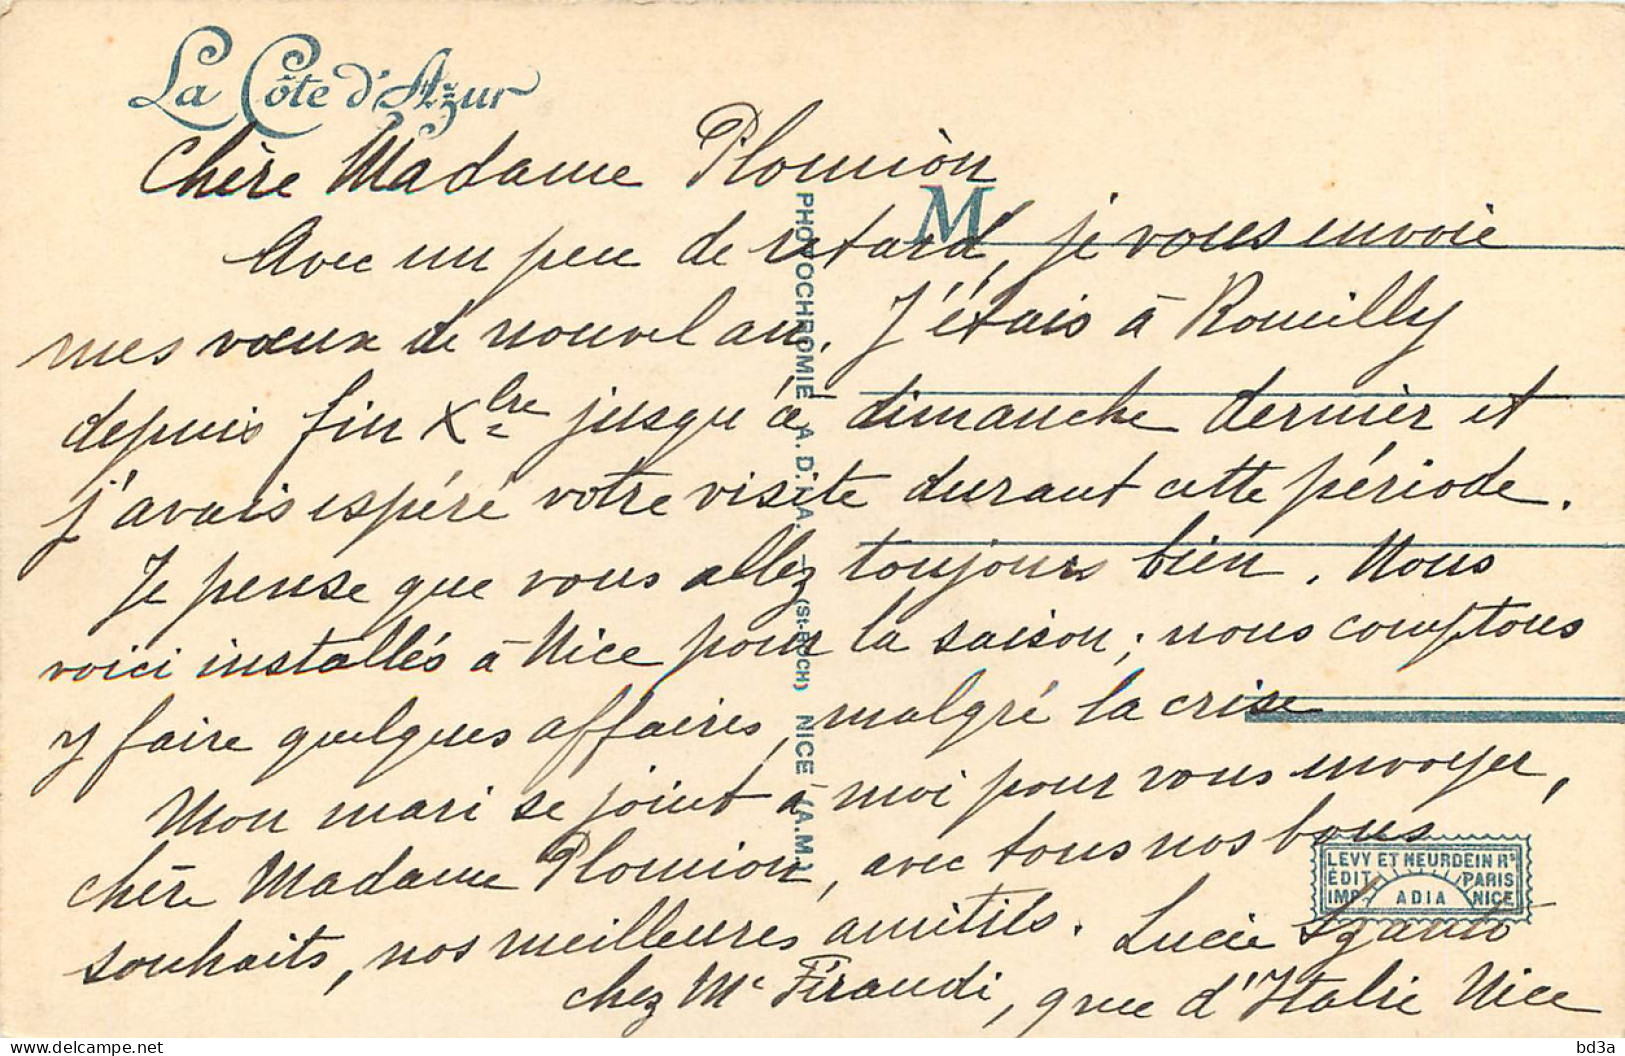 La Côte d'Azur
Chère Madame Plomion
Avec un peu de retard, je vous envoie
mes vœux de nouvel an. J'étais à Romilly
depuis fin Xbre jusqu'à dimanche dernier et
j'avais espéré votre visite durant cette période.
Je pense que vous allez toujours bien. Nous
voici installés à Nice pour la saison; nous comptons
y faire quelques affaires, malgré la crise
Mon mari se joint à moi pour vous envoyer,
chère Madame Plomion, avec tous nos bons
souhaits, nos meilleures amitiés. Lucie
chez Mr Firaudi, 9 rue d'Italie Nice
M
PHOTOCHROMIE A.D.I.A. (St-ROCH) NICE (A.M.)
LEVY ET NEURDEIN Rs
ÉDIT PARIS
IMP. ADIA NICE
bd3a